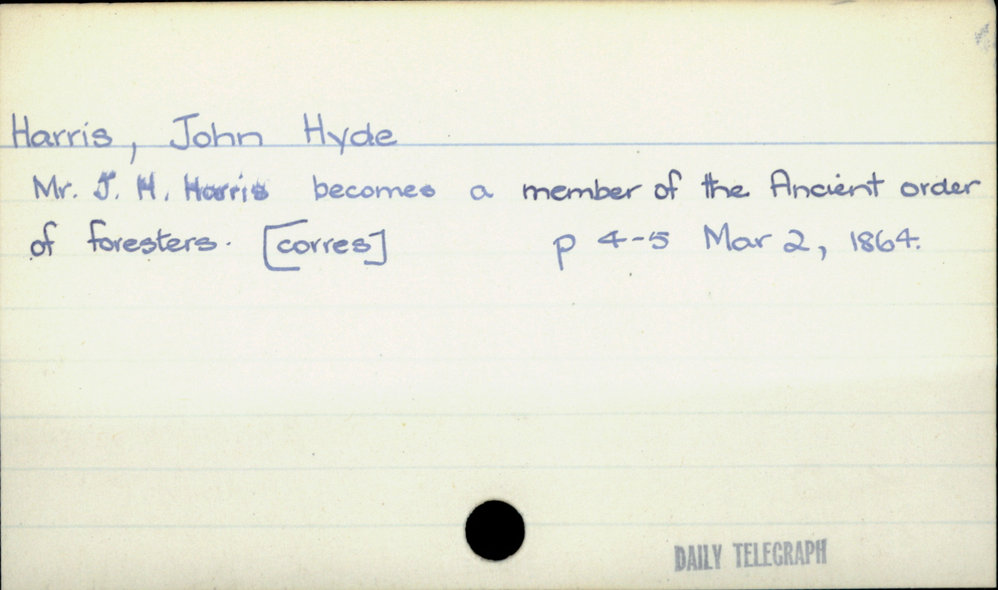 Harris, John Hyde
Mr. J. H. Harris becomes a member of the Ancient order
of foresters. [corres] p 4-5 Mar 2, 1864.
DAILY TELEGRAPH